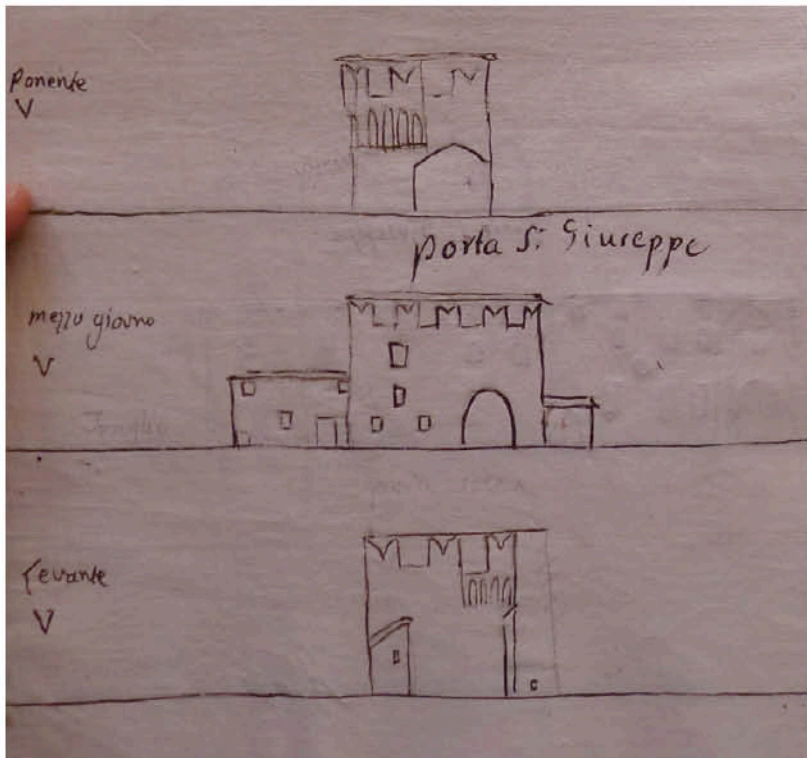 Ponente
V
porta S: Giuseppe
mezzo giorno
V
Levante
V